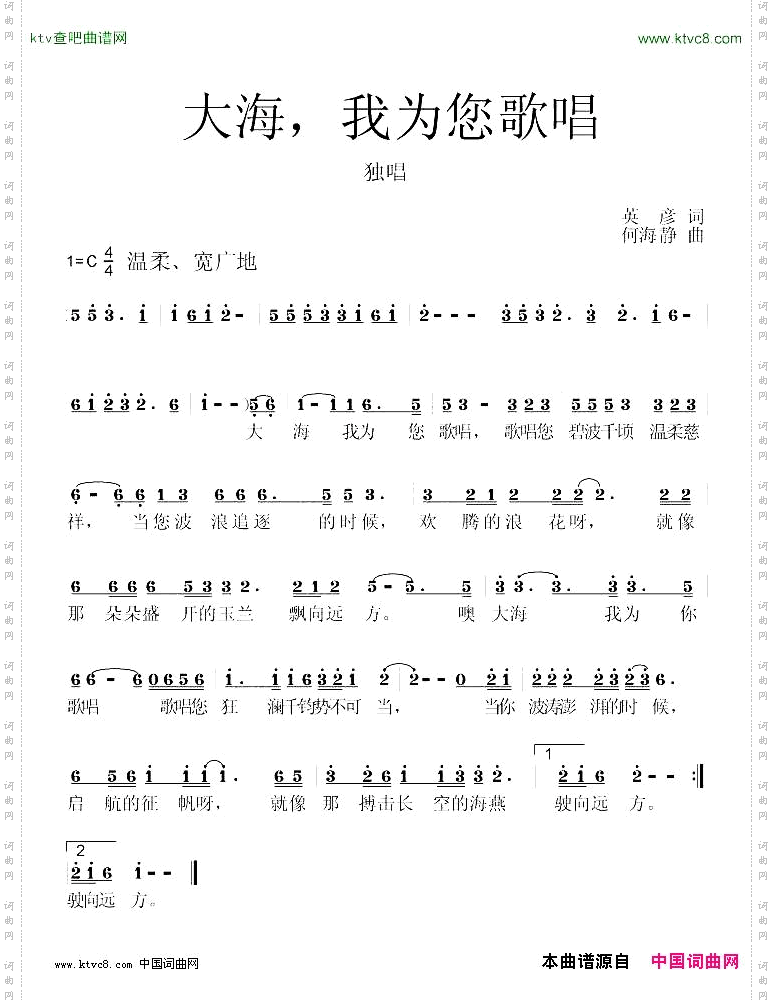 ktv查吧曲谱网 www.ktvc8.com
大海，我为您歌唱
独唱
英彦 词
何海静 曲
1=C 4/4 温柔、宽广地
5 5 3. i | i 6 i 2 - | 5 5 5 3 3 i 6 i | 2 - - - | 3 5 3 2. 3 2. i 6 - |
6 i 2 3 2. 6 | i - - ) 5 6 | i - i 1 6. 5 | 5 3 - 3 2 3 | 5 5 5 3 3 2 3 |
大 海 我为 您 歌唱， 歌唱您 碧波千顷 温柔慈
6 - 6 6 1 3 | 6 6 6. 5 5 3. | 3 2 1 2 2 2 2. | 2 2 |
祥， 当您波 浪追逐 的时候， 欢 腾的浪 花呀， 就像
6 6 6 6 5 3 3 2. | 2 1 2 5 - 5. 5 | 3 3. 3. 3 3. 5 |
那 朵朵盛 开的玉兰 飘向远 方。 噢 大海 我为 你
6 6 - 6 0 6 5 6 | i. i i 6 3 2 i 2 | 2 - - 0 2 i | 2 2 2 2 3 i 2 3 6. |
歌唱 歌唱您 狂 澜千钧势不可 当， 当你 波涛澎 湃的时 候，
6 5 6 i i i i i. 6 5 | 3 2 6 i i 3 3 2. | 1 2 i 6 2 - - :||
启 航的征 帆呀， 就像 那 搏击长 空的海燕 驶向远 方。
2
2 i 6 i - - ||
驶向远 方。
www.ktvc8.com 中国词曲网 本曲谱源自 中国词曲网